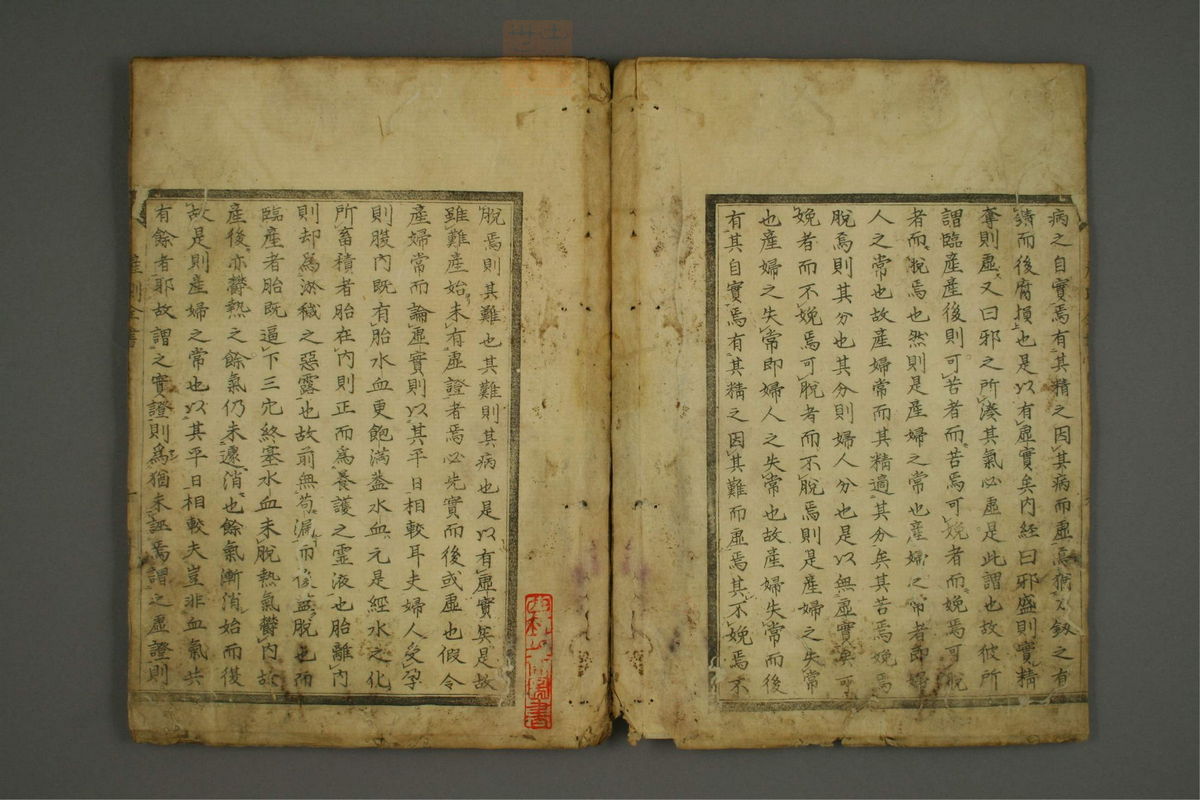 病之自實焉有其精之因其病而虛焉猶人釼之有
鏽而後腐損也是以有虛實矣内經曰邪盛則實精
奪則虛又曰邪之所湊其氣必虛是此謂也故彼所
謂臨産産後則可苦者而苦焉可娩者而娩焉可脱
者而脱焉也然則是産婦之常也産婦之常者即婦
人之常也故産婦常而其精過其分矣其苦焉娩焉
脱焉則其分也其分則婦人分也是以無虛實矣可
娩者而不娩焉可脱者而不脱焉則是産婦之失常
也産婦之失常即婦人之失常也故産婦失常而後
有其自實焉有其精之因其難而虛焉其不娩焉不
脱焉則其難也其難則其病也是以有虛實矣是故
雖難産始未有虛證者焉必先實而後或虛也假令
産婦常而論虛實則以其平日相較耳夫婦人受孕
則腹内既有胎水血更飽滿蓋水血元是經水之化
所畜積者胎在内則正而爲養護之靈液也胎離内
則却爲淤穢之惡露也故前無苟漏而後盡脱也而
臨産者胎既逼下三宂終塞水血未脱熱氣欝内故
産後亦欝熱之餘氣仍未遽消也餘氣漸消始而復
故是則産婦之常也以其平日相較夫豈非血氣共
有餘者耶故謂之實證則爲猶未誣焉謂之虛證則